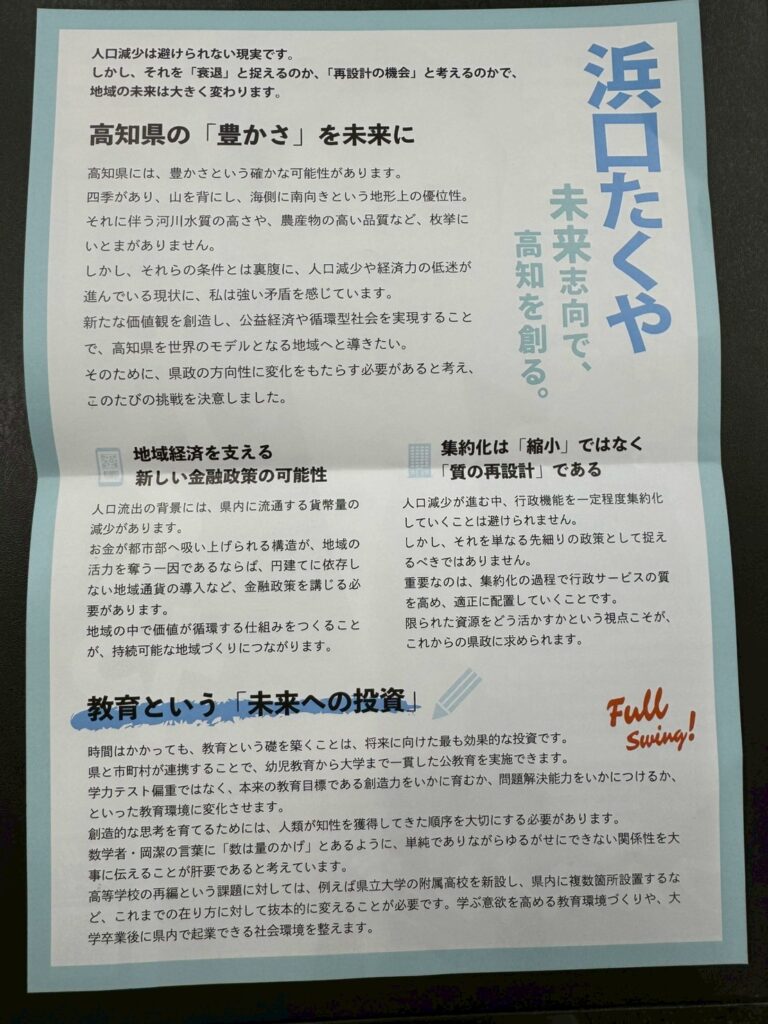 浜口たくや
未来志向で、
高知を創る。
人口減少は避けられない現実です。
しかし、それを「衰退」と捉えるのか、「再設計の機会」と考えるのかで、
地域の未来は大きく変わります。
高知県の「豊かさ」を未来に
高知県には、豊かさという確かな可能性があります。
四季があり、山を背にし、海側に南向きという地形上の優位性。
それに伴う河川水質の高さや、農産物の高い品質など、枚挙に
いとまがありません。
しかし、それらの条件とは裏腹に、人口減少や経済力の低迷が
進んでいる現状に、私は強い矛盾を感じています。
新たな価値観を創造し、公益経済や循環型社会を実現すること
で、高知県を世界のモデルとなる地域へと導きたい。
そのために、県政の方向性に変化をもたらす必要があると考え、
このたびの挑戦を決意しました。
地域経済を支える
新しい金融政策の可能性
人口流出の背景には、県内に流通する貨幣量の
減少があります。
お金が都市部へ吸い上げられる構造が、地域の
活力を奪う一因であるならば、円建てに依存し
ない地域通貨の導入など、金融政策を講じる必
要があります。
地域の中で価値が循環する仕組みをつくること
が、持続可能な地域づくりにつながります。
集約化は「縮小」ではなく
「質の再設計」である
人口減少が進む中、行政機能を一定程度集約化
していくことは避けられません。
しかし、それを単なる先細りの政策として捉え
るべきではありません。
重要なのは、集約化の過程で行政サービスの質
を高め、適正に配置していくことです。
限られた資源をどう活かすかという視点こそが、
これからの県政に求められます。
教育という「未来への投資」
Full
Swing!
時間はかかっても、教育という礎を築くことは、将来に向けた最も効果的な投資です。
県と市町村が連携することで、幼児教育から大学まで一貫した公教育を実施できます。
学力テスト偏重ではなく、本来の教育目標である創造力をいかに育むか、問題解決能力をいかにつけるか、
といった教育環境に変化させます。
創造的な思考を育てるためには、人類が知性を獲得してきた順序を大切にする必要があります。
数学者・岡潔の言葉に「数は量のかげ」とあるように、単純でありながらゆるがせにできない関係性を大
事に伝えることが肝要であると考えています。
高等学校の再編という課題に対しては、例えば県立大学の附属高校を新設し、県内に複数箇所設置するな
ど、これまでの在り方に対して抜本的に変えることが必要です。学ぶ意欲を高める教育環境づくりや、大
学卒業後に県内で起業できる社会環境を整えます。